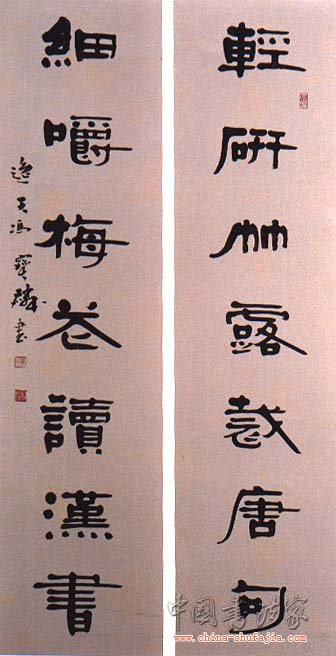 輕研竹露裁唐句
細嚼梅花讀漢書
天馮寶麟書
中國書法家
www.china-shufajia.com